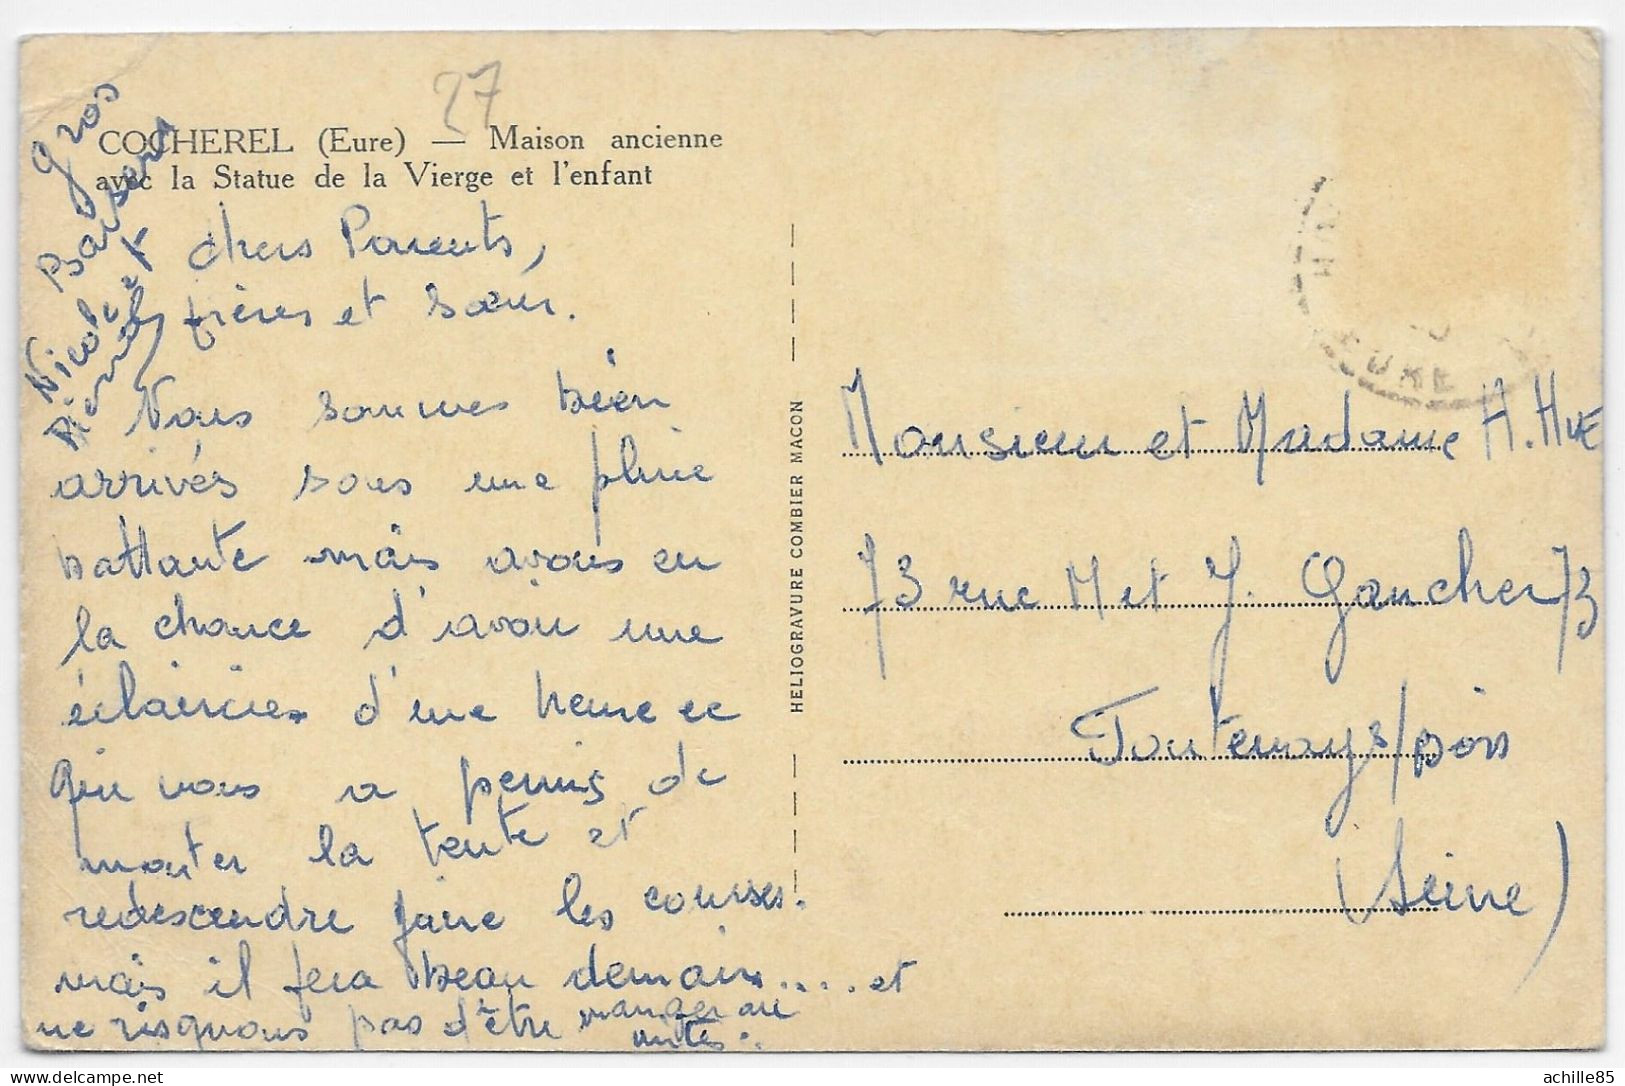 27
COCHEREL (Eure) — Maison ancienne
avec la Statue de la Vierge et l'enfant
chers Parents,
frères et sœur.
Nous sommes bien
arrivés sous une pluie
battante mais avons eu
la chance d'avoir une
éclaircie d'une heure
qui nous a permis de
monter la tente et
redescendre faire les courses.
mais il fera beau demain.....et
ne risquons pas d'être manger
mites.
Gros
Baisers
Nicole et
HELIOGRAVURE COMBIER MACON
Monsieur et Madame H. HUE
73 rue M et J. Gaucher 73
Fontenay s/Bois
(Seine)
URE
achille85